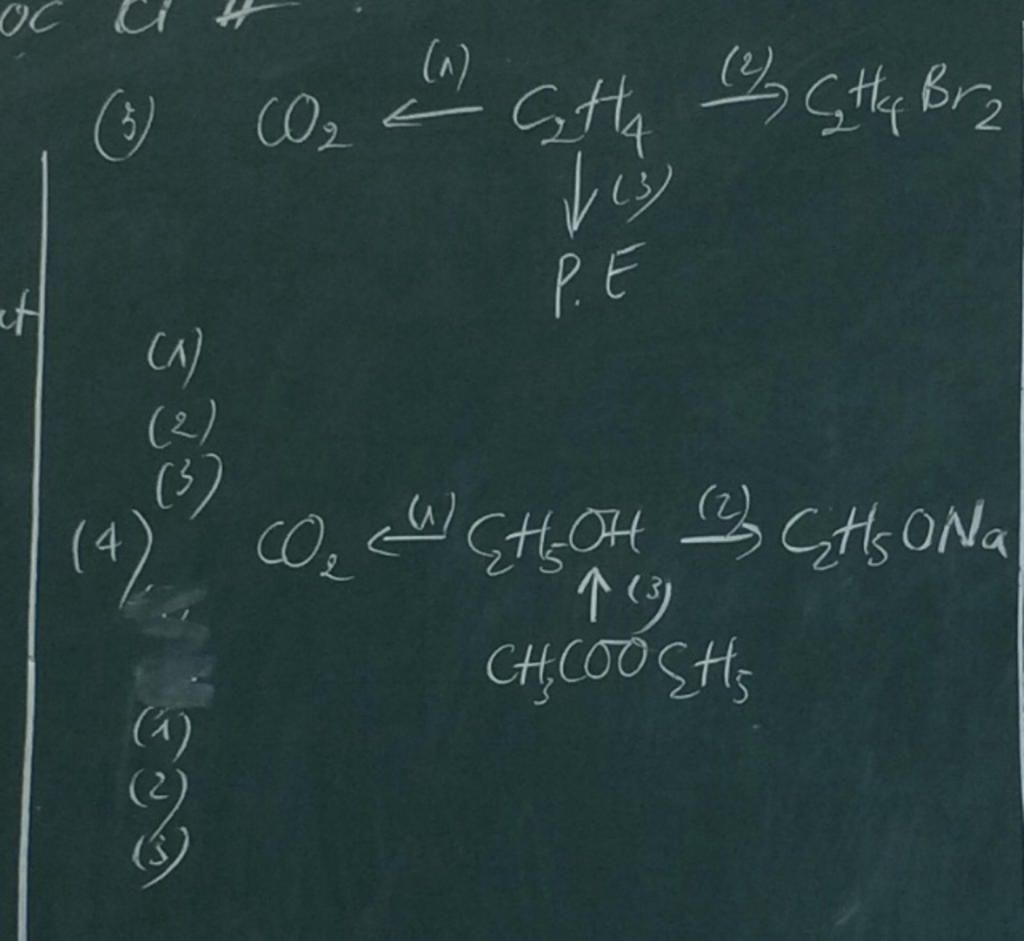 (3) CO₂ ←(1) C₂H₄ (2)→ C₂H₄Br₂
↓ (3)
P.E
(1)
(2)
(3)
(4) CO₂ ←(1) C₂H₅OH (2)→ C₂H₅ONa
↑ (3)
CH₃COOC₂H₅
(1)
(2)
(3)